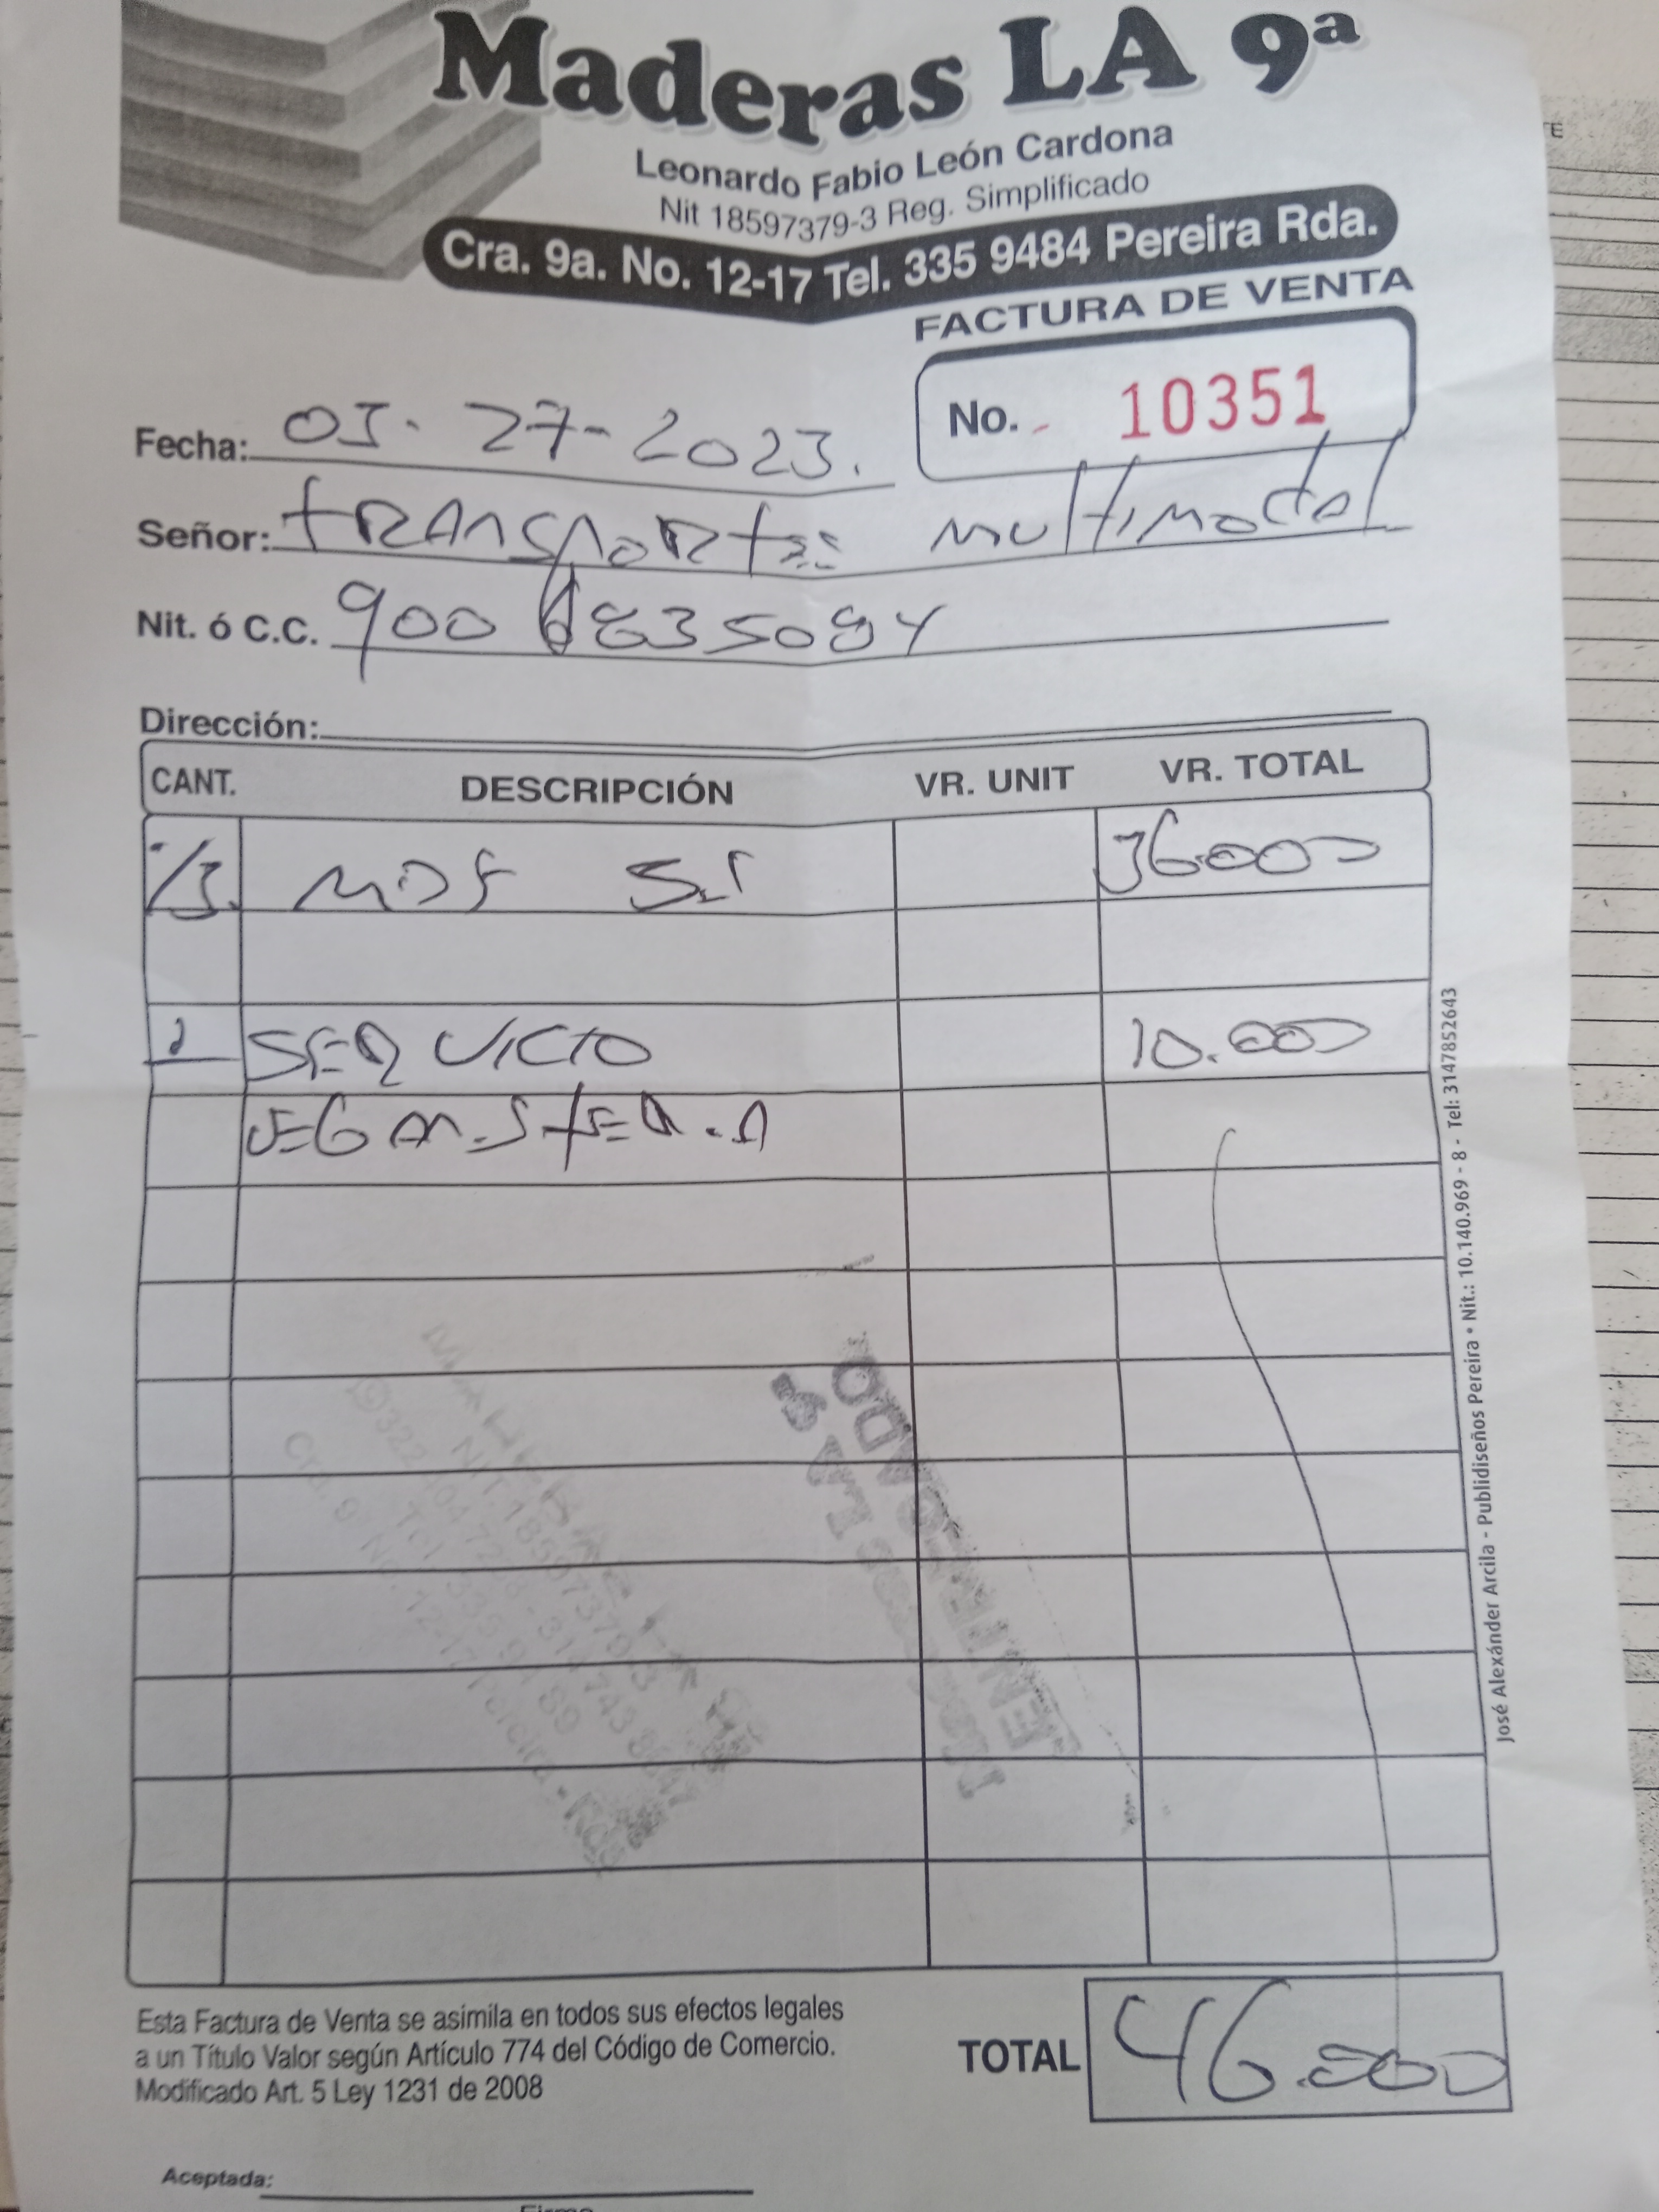 Maderas LA 9ª
Leonardo Fabio León Cardona
Nit 18597379-3 Reg. Simplificado
Cra. 9a. No. 12-17 Tel. 335 9484 Pereira Rda.
FACTURA DE VENTA
No. 10351
Fecha: 03-27-2023.
Señor: tRANSPORtes multimodal
Nit. ó C.C. 900 835084
Dirección:
CANT. DESCRIPCIÓN VR. UNIT VR. TOTAL
1/3. MDF 5.5 36000
1 SERVICIO 10.000
TOTAL 46.000
ENTREGADO
MADERAS LA 9
MADERAS LA 9
NIT. 18597379-3
Cra. 9ª No. 12-17 Pereira - Rda
Esta Factura de Venta se asimila en todos sus efectos legales
a un Título Valor según Artículo 774 del Código de Comercio.
Modificado Art. 5 Ley 1231 de 2008
Aceptada:
Firma
José Alexánder Arcila - Publidiseños Pereira • Nit.: 10.140.969 - 8 - Tel: 3147852643